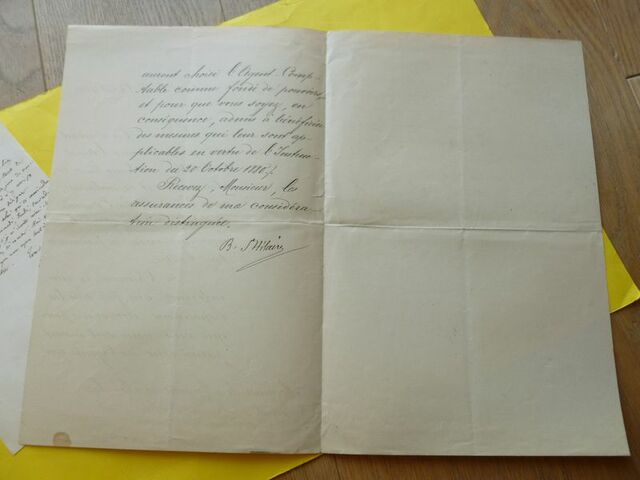 auront choisi l'Agent-Comp-
table comme fondé de pouvoirs,
et pour que vous soyez, en
conséquence, admis à bénéficier
des mesures qui leur sont ap-
plicables en vertu de l'Instruc-
tion du 20 Octobre 1880.
Recevez, Monsieur, les
assurances de ma considéra-
tion distinguée.
B. St Hilaire